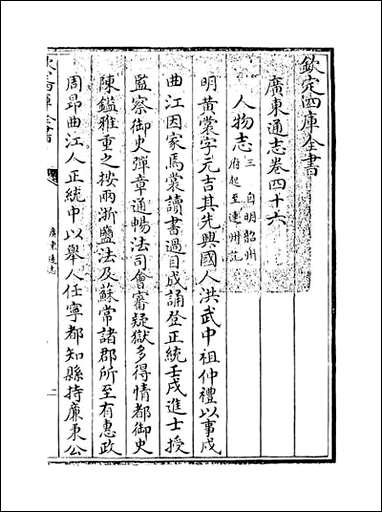 欽定四庫全書
廣東通志卷四十六
人物志三 自明韶州府起至連州止
明黄裳字元吉其先興國人洪武中祖仲禮以事戍
曲江因家焉裳讀書過目成誦登正統壬戌進士授
監察御史彈章通暢法司會審疑獄多得情都御史
陳鑑雅重之按兩浙鹽法及蘇常諸郡所至有惠政
周昻曲江人正統中以舉人任寧都知縣持廉秉公
廣東通志